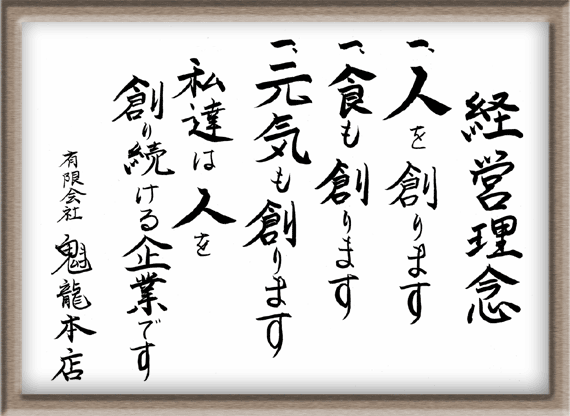 経営理念
一、人を創ります
一、食も創ります
一、元気も創ります
私達は人を
創り続ける企業です
有限会社 魁龍本店